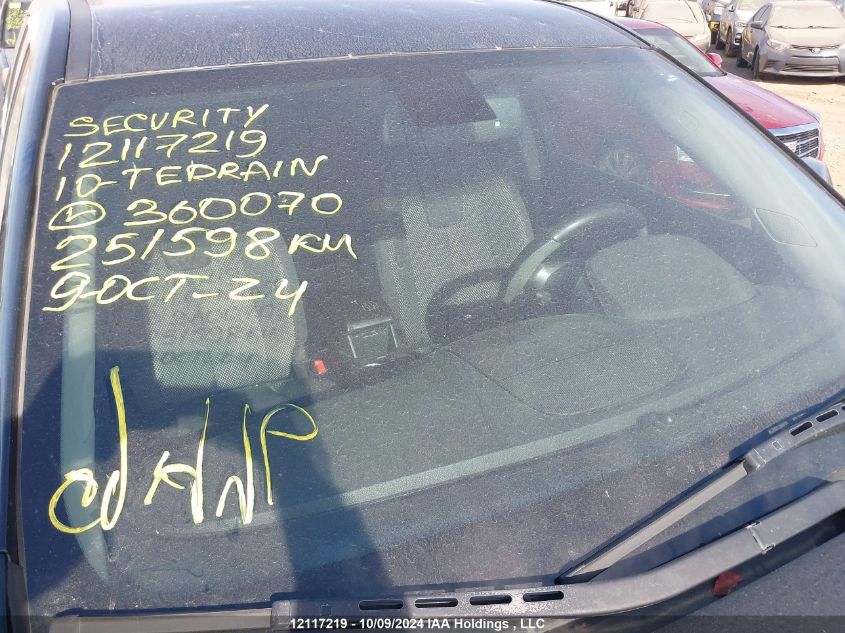 SECURITY
12117219
10-TERRAIN
D 360070
251598 KM
9-OCT-24
12117219 - 10/09/2024 IAA Holdings , LLC